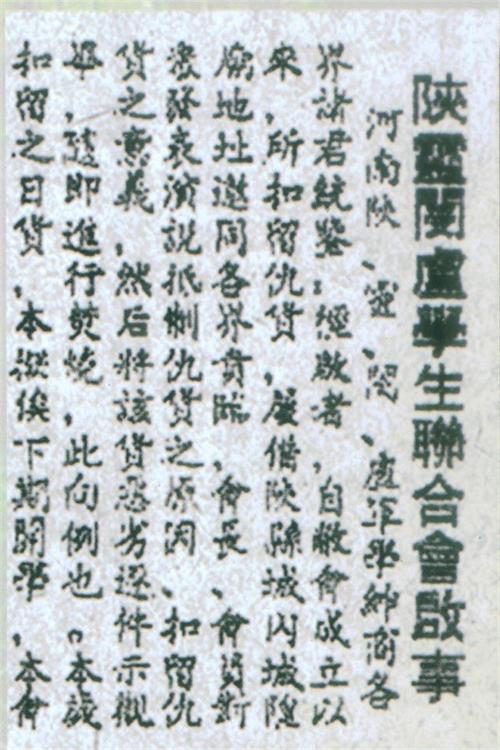 陝靈閿盧學生聯合會啟事
河南陝、靈、閿、盧軍學紳商各
界諸君統鑒：經啟者，自敝會成立以
來，所扣留仇貨，屢借陝縣城内城隍
廟地址邀同各界責臨，會長、會員對
衆發表演説抵制仇貨之原因、扣留仇
貨之意義，然后將該貨惡劣逐件示觀
畢，隨即進行焚燒，此向例也。本
扣留之日貨，本俟下期開學，本會